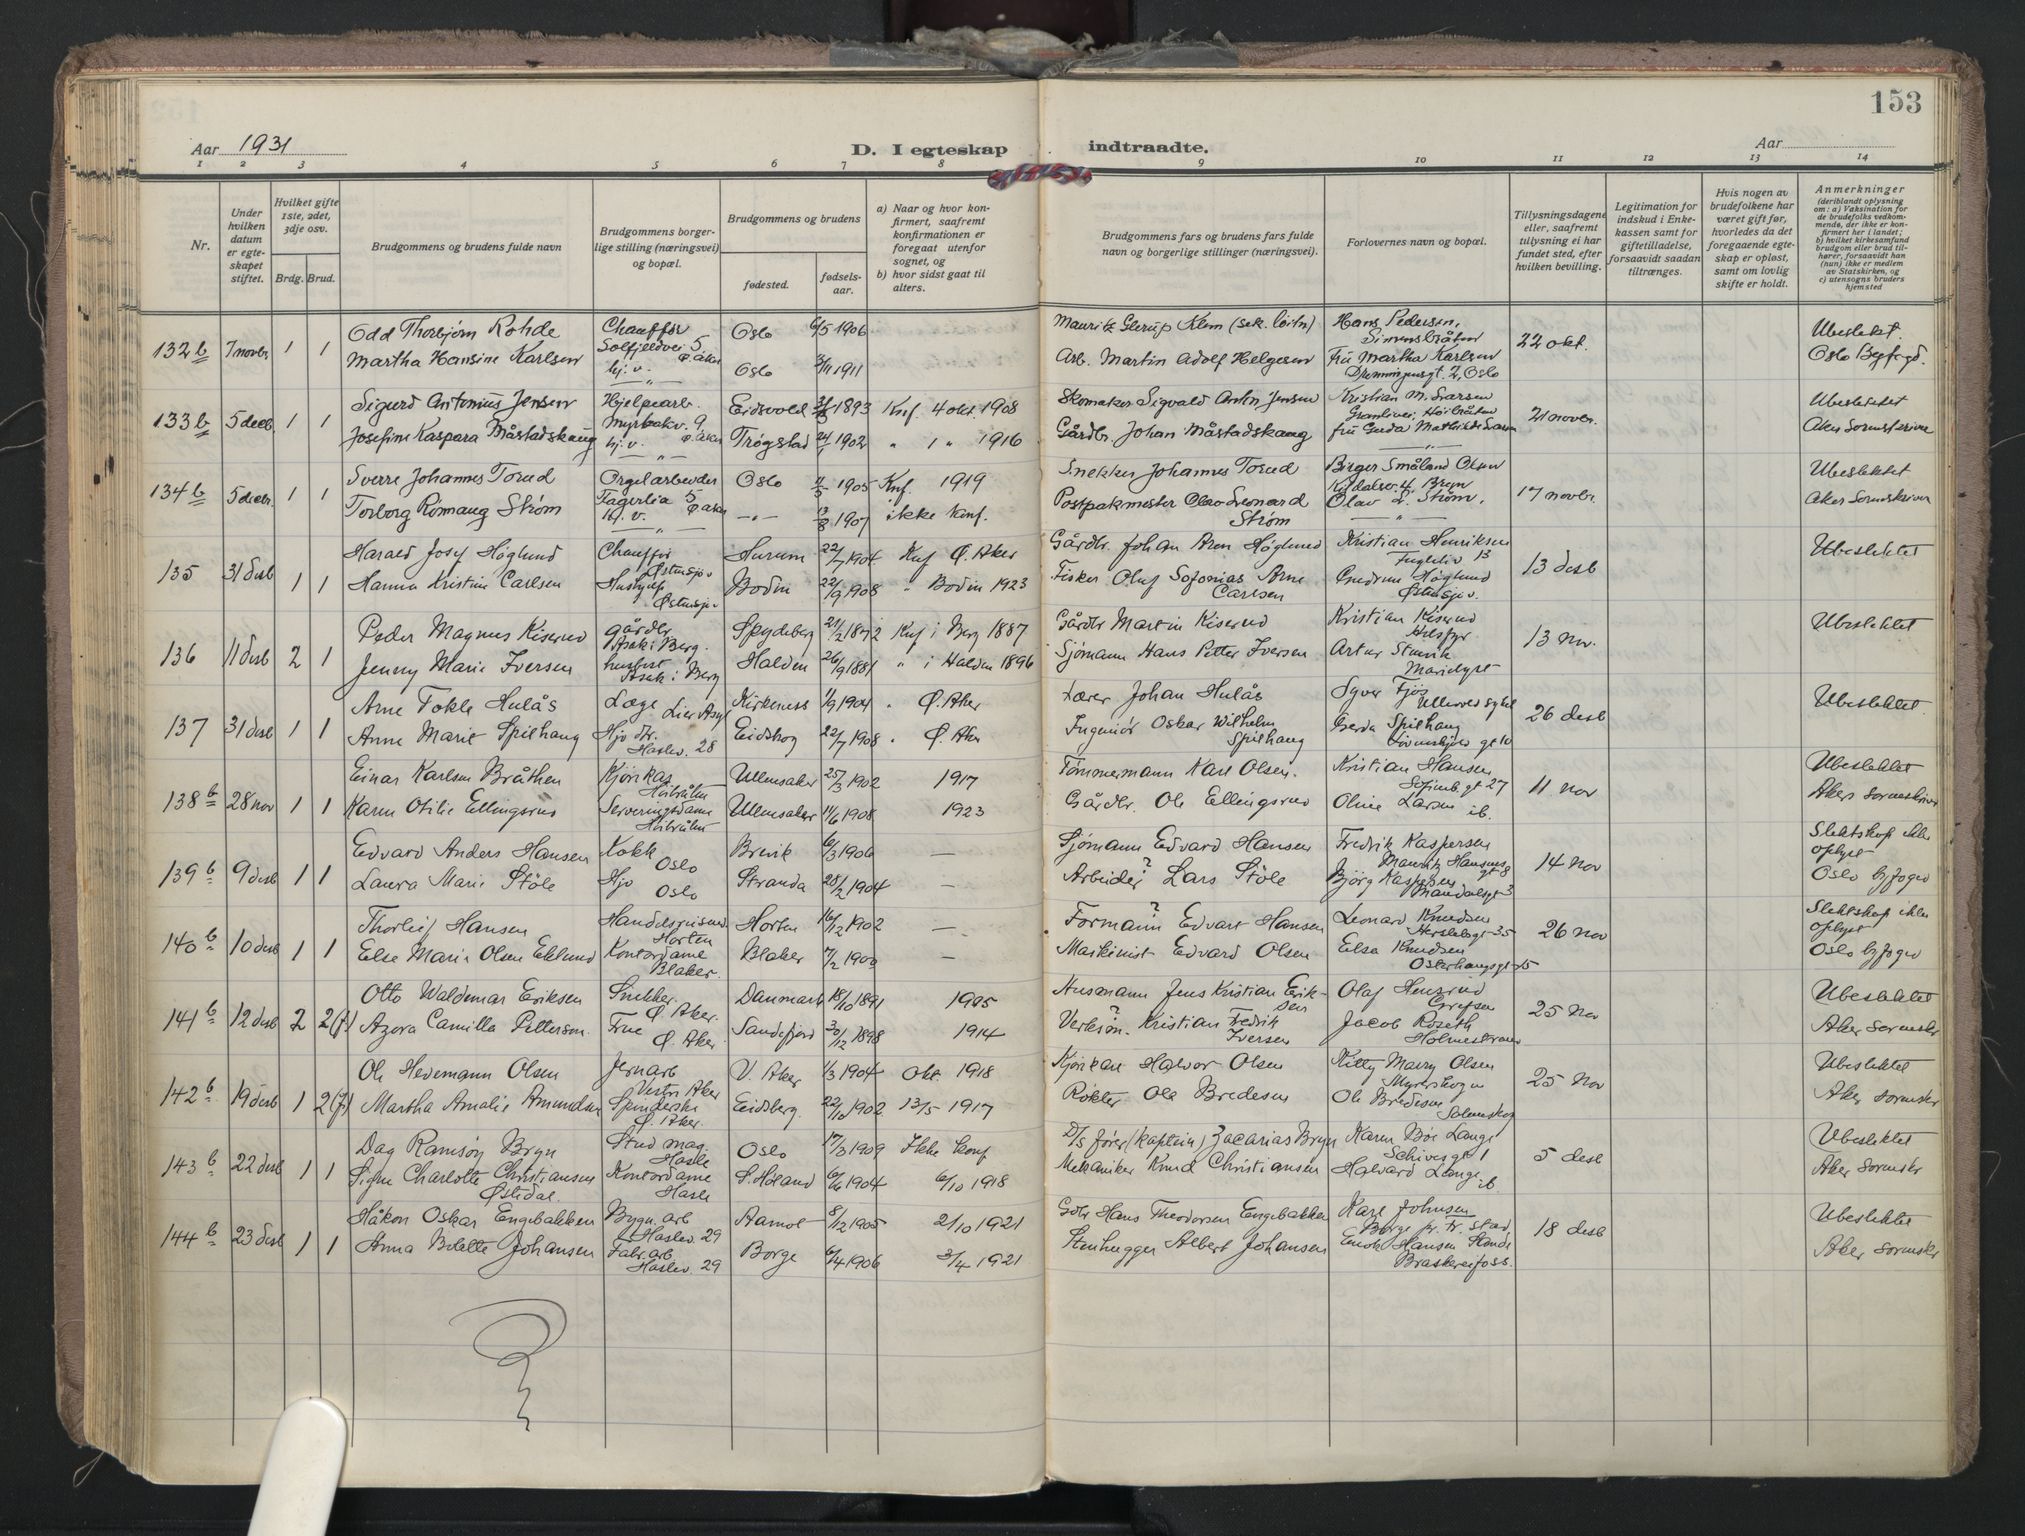 153
Aar 1931
D. I egteskap
indtraadte.
Aar
1 2 3 4 5 6 7 8 9 10 11 12 13 14
Nr.
Under hvilken datum er egteskapet stiftet.
Hvilket gifte 1ste, 2det, 3dje osv.
Brdg. Brud.
Brudgommens og brudens fulde navn
Brudgommens borgerlige stilling (næringsvei) og bopæl.
Brudgommens og brudens
fødested.
fødselsaar.
a) Naar og hvor konfirmert, saafremt konfirmationen er foregaat utenfor sognet, og
b) hvor sidst gaat til alters.
Brudgommens fars og brudens fars fulde navn og borgerlige stillinger (næringsvei).
Forlovernes navn og bopæl.
Tillysningsdagene eller, saafremt tillysning ei har fundet sted, efter hvilken bevilling.
Legitimation for indskud i Enkekassen samt for giftetilladelse, forsaavidt saadan tiltrænges.
Hvis nogen av brudefolkene har været gift før, hvorledes da det foregaaende egteskap er opløst, samt om lovlig skifte er holdt.
Anmerkninger (deriblandt oplysning om: a) Vaksination for de brudefolks vedkommende, der ikke er konfirmert her i landet; b) hvilket kirkesamfund brudgom eller brud tilhører, forsaavidt han (hun) ikke er medlem av Statskirken, og c) utensogns bruders hjemsted
132 b 7 novbr. 1 1 Odd Thorbjørn Rohde Chauffør Solfjeldvei 5 Ø. Aker Oslo 6/5 1906 Mauritz Glerup Klem (sek. løitn) Hans Pedersen, Simensbråten 22 okt. Ubeslektet.
Martha Hansine Karlsen hj. v. Oslo 3/11 1911 Arb. Martin Adolf Helgesen Fru Martha Karlsen Dronningensgt. 2, Oslo Oslo Byfogd.
133 b 5 decb. 1 1 Sigurd Antonius Jensen Hjelpearb. Myrbakv. 9 Ø. Aker Eidsvold 1893 Knf. 4 okt. 1908 Skomaker Sigvald Antn. Jensen Kristian M. Svarsen Granlivei, Høibråten 21 novbr. Ubeslektet
Josefine Kaspara Måstadskaug hj. v. Trøgstad 1902 " 1 " 1916 Gårdbr. Johan Måstadskaug fru Gerda Mathilde Svarsen Aker Sorenskriver
134 b 5 decbr. 1 1 Sverre Johannes Torud Orgelarbeider Fagerlia 5 Ø Aker Oslo 1905 Knf. 1919 Snekker Johannes Torud Birger Småland Olsen Kildalsv. 4 Bryn 17 novbr. Ubeslektet
Torborg Romaug Strøm hj. v. — " — 13/8 1907 ikke konf. Postpakmester Olav Leonard Strøm Olav L. Strøm. Aker Sorenskriver
135 31 desb 1 1 Harald Josef Höglund Chauffør Østensjøv Hurum 22/7 1904 Knf Ø. Aker Gårdbr. Johan Aron Höglund Kristian Henriksen Fugleliv 13 13 desb Ubeslektet
Hanna Kristine Carlsen Hushjelp Østensjøv Bodin 22/9 1908 " Bodin 1923 Fisker Oluf Sofonias Arne Carlsen Gudrun Höglund Østensjøv.
136 11 desb 2 1 Peder Magnus Kiserud gårdbr Asak i Berg. Spydeberg 21/2 1872 Knf i Berg 1887 Gårdbr Martin Kiserud Kristian Kiserud Helsfyr 13 nov. Ubeslektet
Jenny Marie Iversen Asak i Berg Halden 26/9 1881 " i Halden 1896 Sjømann Hans Petter Iversen Artur Marielyst
137 31 desb 1 1 Arne Fokle Hulås Læge Lier Asyl Kirkeness 1/9 1904 " Ø. Aker Lærer Johan Hulås Syver Fjøs Ullevol sykeh 26 desb Ubeslektet
Anne Marie Spilhaug Hjv dtr. Haslev. 28 Eidskog 22/7 1908 " Ø. Aker Ingeniør Oskar Wilhelm Spilhaug Gerda Spilhaug gt 10
138 b 28 nov 1 1 Einar Karlsen Bråthen Kjørekar Høibråten Ullensaker 25/3 1902 1917 Tømmermann Karl Olsen. Kristian Hansen Sofienb gt 27 11 nov Ubeslektet
Karen Otilie Ellingsrud Serveringsdame Høibråten Ullensaker 14/6 1908 1923 Gårdbr. Ole Ellingsrud Oline Larsen ib. Akers sorenskriver
139 b 9 desb 1 1 Edvard Anders Hansen Kokk Oslo Brevik 6/3 1906 — Sjømann Edvard Hansen Fredrik Kaspersen Mauritz Hansens gt 8 14 nov Slektskap ikke oplyst
Laura Marie Støle Hjv Oslo Stranda 28/2 1904 — Arbeider? Lars Støle Bjørg Kaspersen Mandalsgt 3 Oslo byfogd
140 b 10 desb 1 1 Thorleif Hansen Handelsreisend Horten Horten 16/12 1902 — Formann? Edvart Hansen Leonard Knudsen Herslebsgt 35 26 nov Slektskap ikke oplyst
Else Marie Olsen Eklund Kontordame Blaker. Blaker 7/2 1900 — Maskinist Edvard Olsen Elsa Knudsen Osterhausgt 15 Oslo byfogd
141 b 12 desb 2 2(f) Otto Waldemar Eriksen Snekker. Ø. Aker. Danmark 18/10 1891 1905 Husmann Jens Kristian Eriksen Olaf Grefsen 25 nov Ubeslektet
Azora Camilla Pettersen. Frue Ø. Aker. Sandefjord 30/12 1898 1914 Kristian Fredrik Iversen Jacob Roseth Holmestrand Aker Sorenskr
142 b 19 desb 1 2(f) Ole Hedemann Olsen Jernarb Vestre Aker V. Aker 1/3 1904 Okt. 1918 Kjørekar Halvor Olsen Kitty Mary Olsen Myrerskogen 25 nov Ubeslektet
Martha Amalie Amundsen Spinderske Ø. Aker. Eidsberg. 22/10 1902 13/5 1917 Røkter Ole Bredesen Ole Bredesen Aker sorenskr
143 b 22 desb 1 1 Dag Ramsøy Bryn Stud mag. Hasle Oslo 17/3 1909 Ikke konf D/s fører (kaptein) Zacarias Bryn Karen Boe Lange Schivesgt 1 5 desb Ubeslektet
Signe Charlotte Christiansen Østidal. Kontordame Hasle S. Høland 6/6 1904 6/10 1918 Mekaniker Knud Christiansen Halvard Lange ib. Aker Sorenskr
144 b 23 desb 1 1 Håkon Oskar Engebakken Bygn. arb Haslev. 29 Aamot 8/12 1905 2/10 1921 Gbr Hans Theodorsen Engebakken Karl Johnsen Børge pr. Fr. stad 18 desb Ubeslektet
Anna Bolette Johansen Fabr. arb Haslev. 29 Borge 6/4 1906 3/4 1921 Stenhugger Albert Johansen Enok Hansen Sande Braskereifoss. Aker Sorenskr